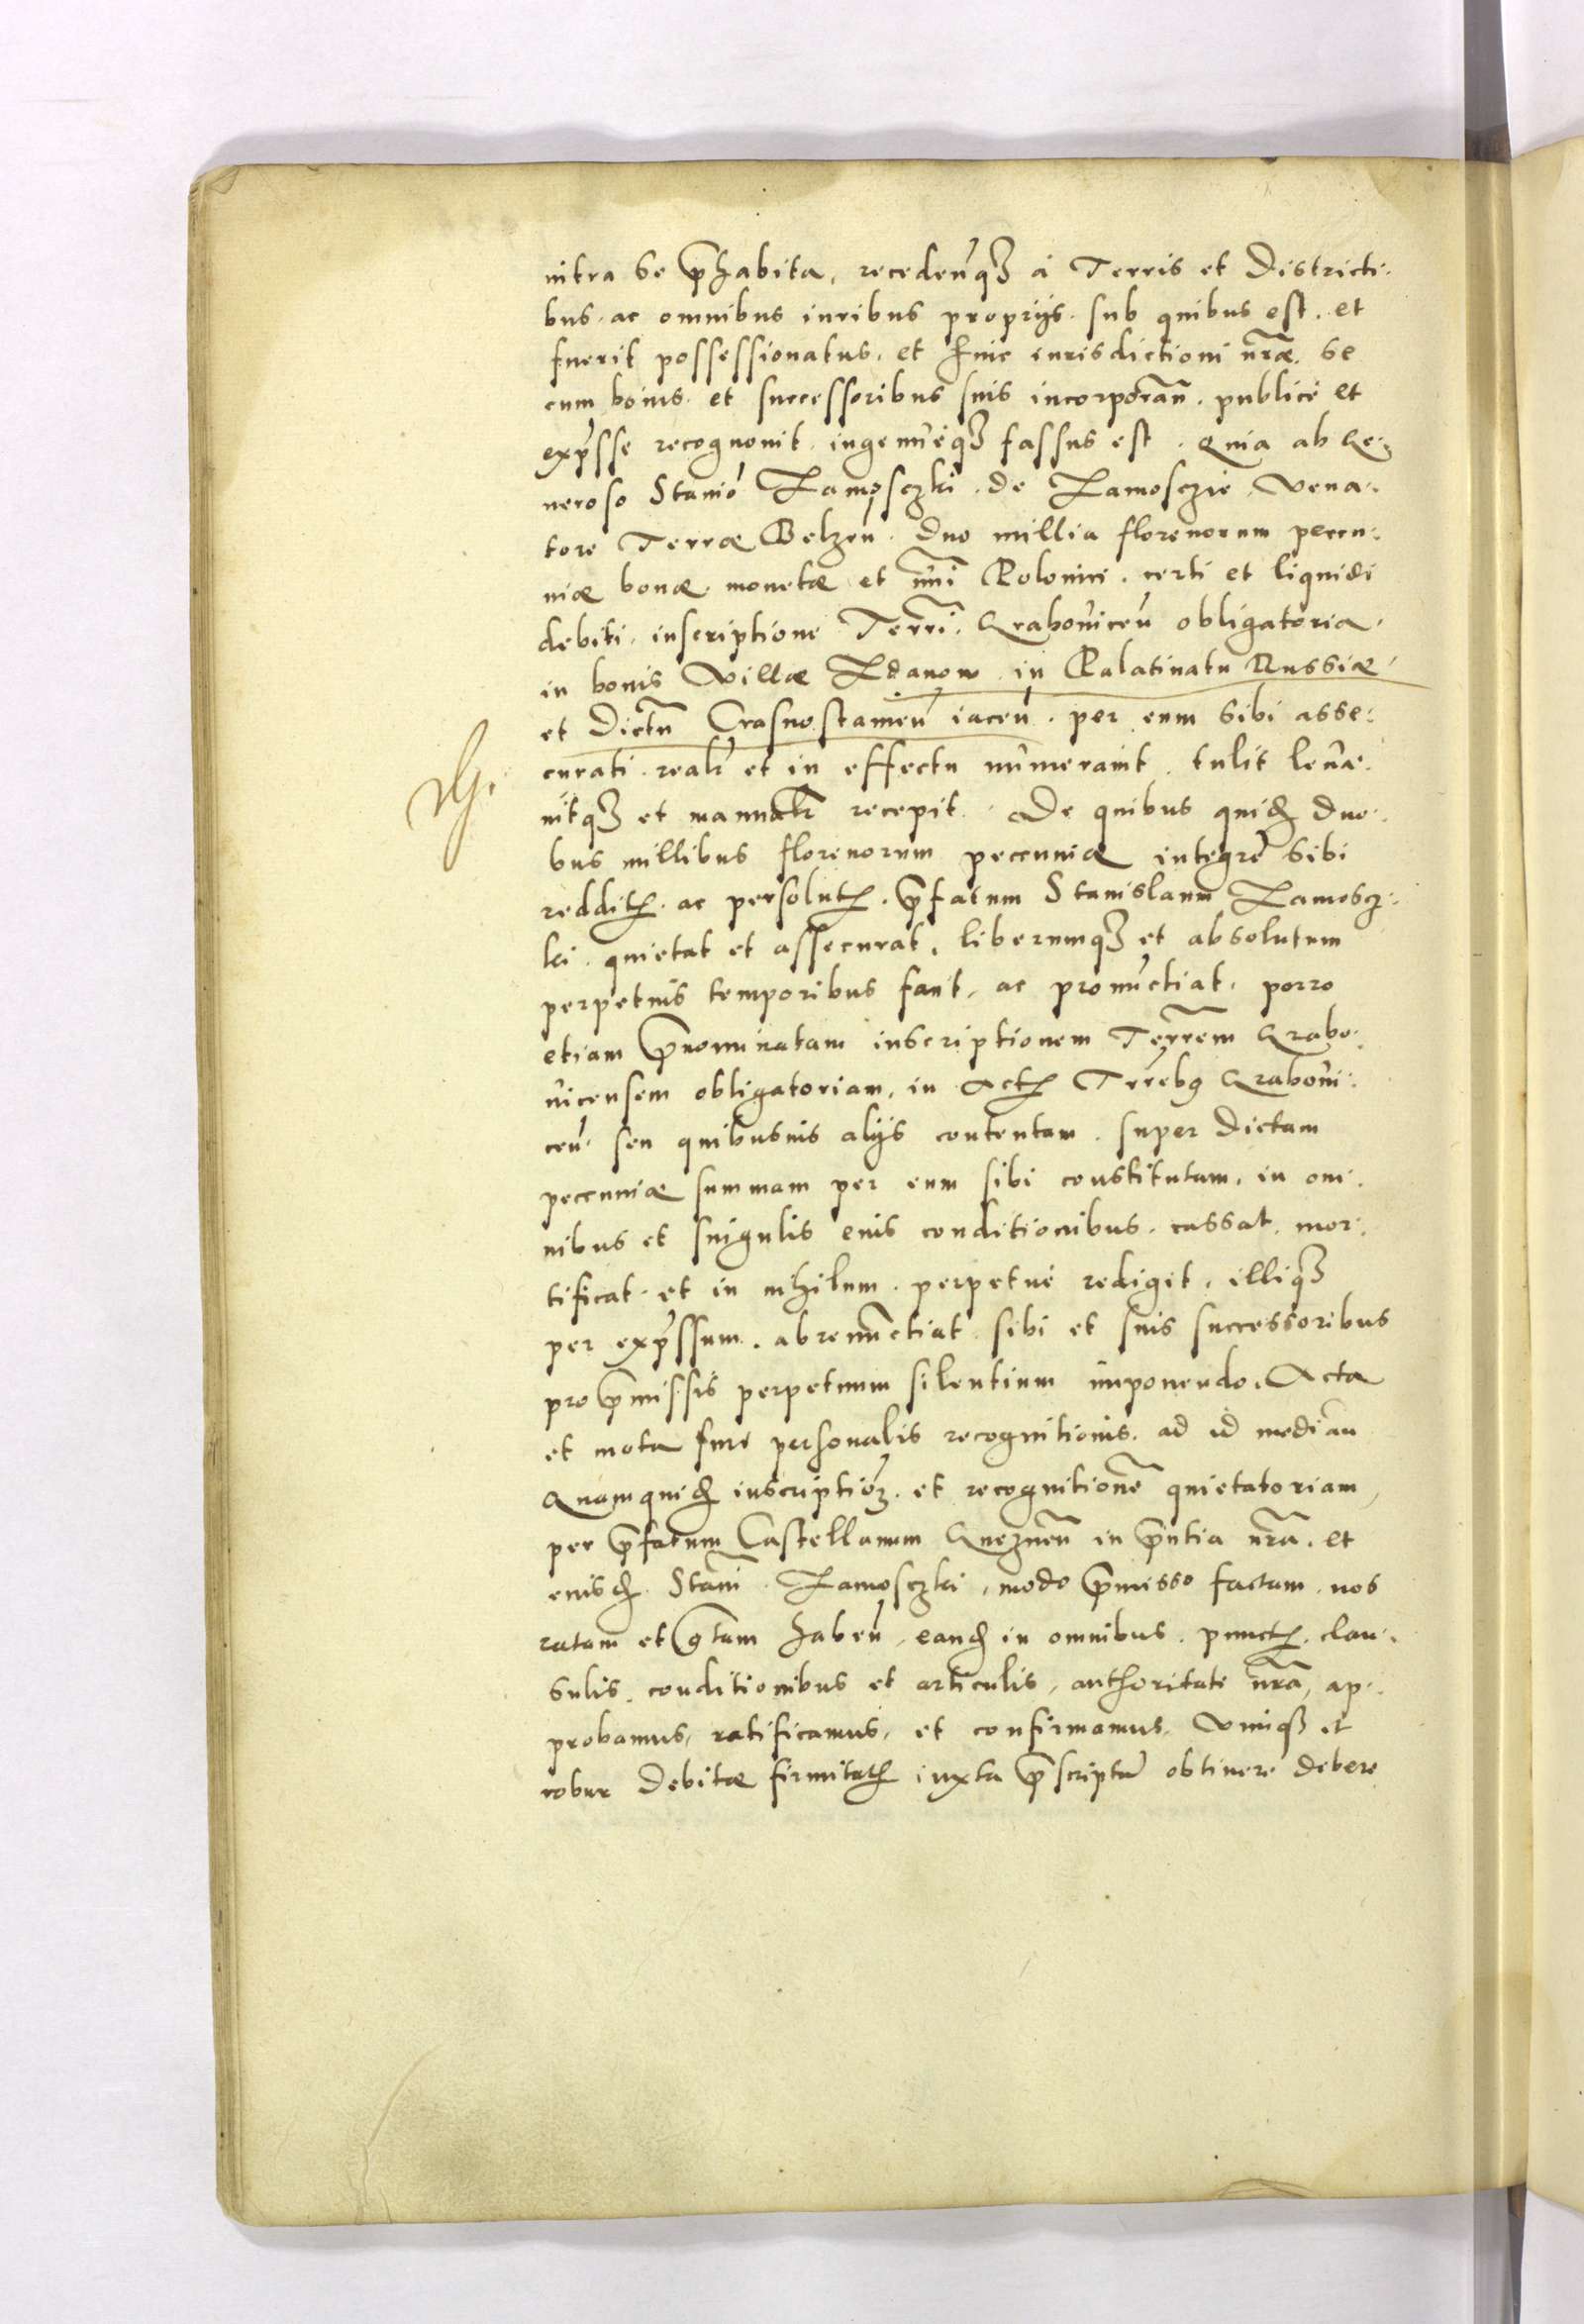 intra se p̃habita, recedeñq3 á Terris et Districti-
bus. ac omnibus iuribus proprijs. sub quibus est. et
fuerit possessionatus. et huic iurisdictioni nr̃æ. se
cum bonis. et successoribus suis incorporañ. publicé et
exp̃sse recognouit. ingenuéq3 fassus est. Quia ab Ge-
neroso Stanió Zamosczki. de Zamosczie. Vena-
tore Terræ Belzeñ. Duo millia florenorum pecu-
niæ bonæ. monetæ et nũi Polonici. certi et liquidi
debiti. inscriptione Terr̃i. Graboviceñ obligatoria.
in bonis Villæ Zdanow in Palatinatu Russiæ
et Dictũ Crasnostameñ iaceñ. per eum sibi asse-
curati. realr̃ et in effectu numerauit. tulit leua-
uitq3 et manualr̃ recepit. De quibus quid3 duo-
bus millibus florenorum pecuniæ integré sibi
reddit3. ac persolut3. p̃fatum Stanislaum Zamoscz-
ki. quietat et assecurat, liberumq3 et absolutum
perpetuis temporibus facit, ac pronũctiat. porro
etiam p̃nominatam inscriptionem Terr̃em Grabo-
uicensem obligatoriam, in Act3 Terr̃eb9 Graboui-
ceñ. seu quibusuis alijs contentam. super dictam
pecuniæ summam per eum sibi constitutam. in om-
nibus et singulis eius conditionibus. cassat. mor-
tificat. et in nihilum. perpetué redigit. illiq3
per exp̃ssum. abrenũctiat. sibi et suis successoribus
pro p̃missis perpetuum silentium imponendo. Acta
et nota sui personalis recognitionis. ad id mediañ
Quamquid3 inscriptió3. et recognitionẽ quietatoriam,
per p̃fatum Castellanum Gnezneñ in p̃ntia nr̃a. et
eiusd3 Stañi Zamosczki, modo p̃misso factam. nos
ratam et g̃tam habeñ, eand3 in omnibus. punct3. clau-
sulis. conditionibus et articulis, authoritate nr̃a, ap-
probamus, ratificamus, et confirmamus. Vimq3 et
robur debitæ firmitat3 iuxta p̃scriptũ obtinere debere